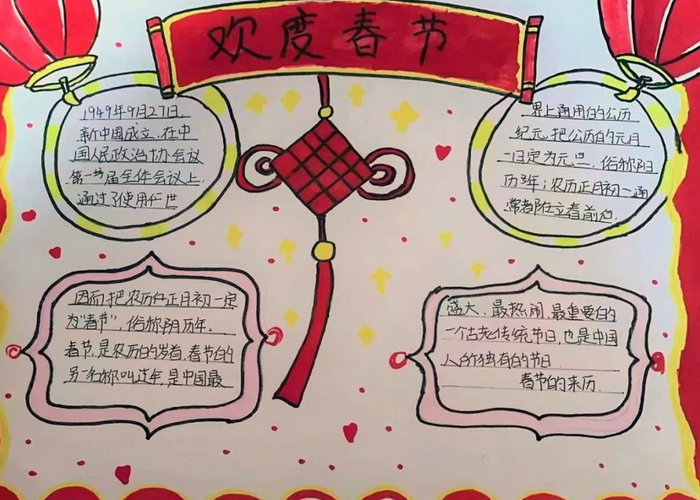 欢度春节
1949年9月27日,
新中国成立,在中
国人民政治协会议
第一届全体会议上,
通过了使用世
界上通用的公历
纪元,把公历的元月
一日定为元旦,俗称阳
历年;农历正月初一通
常都在立春前后,
因而把农历的正月初一定
为"春节",俗称阴历年。
春节,是农历的岁首,春节的
另一名称叫过年,是中国最
盛大、最热闹、最重要的
一个古老传统节日,也是中国
人的独有的节日.
春节的来历.